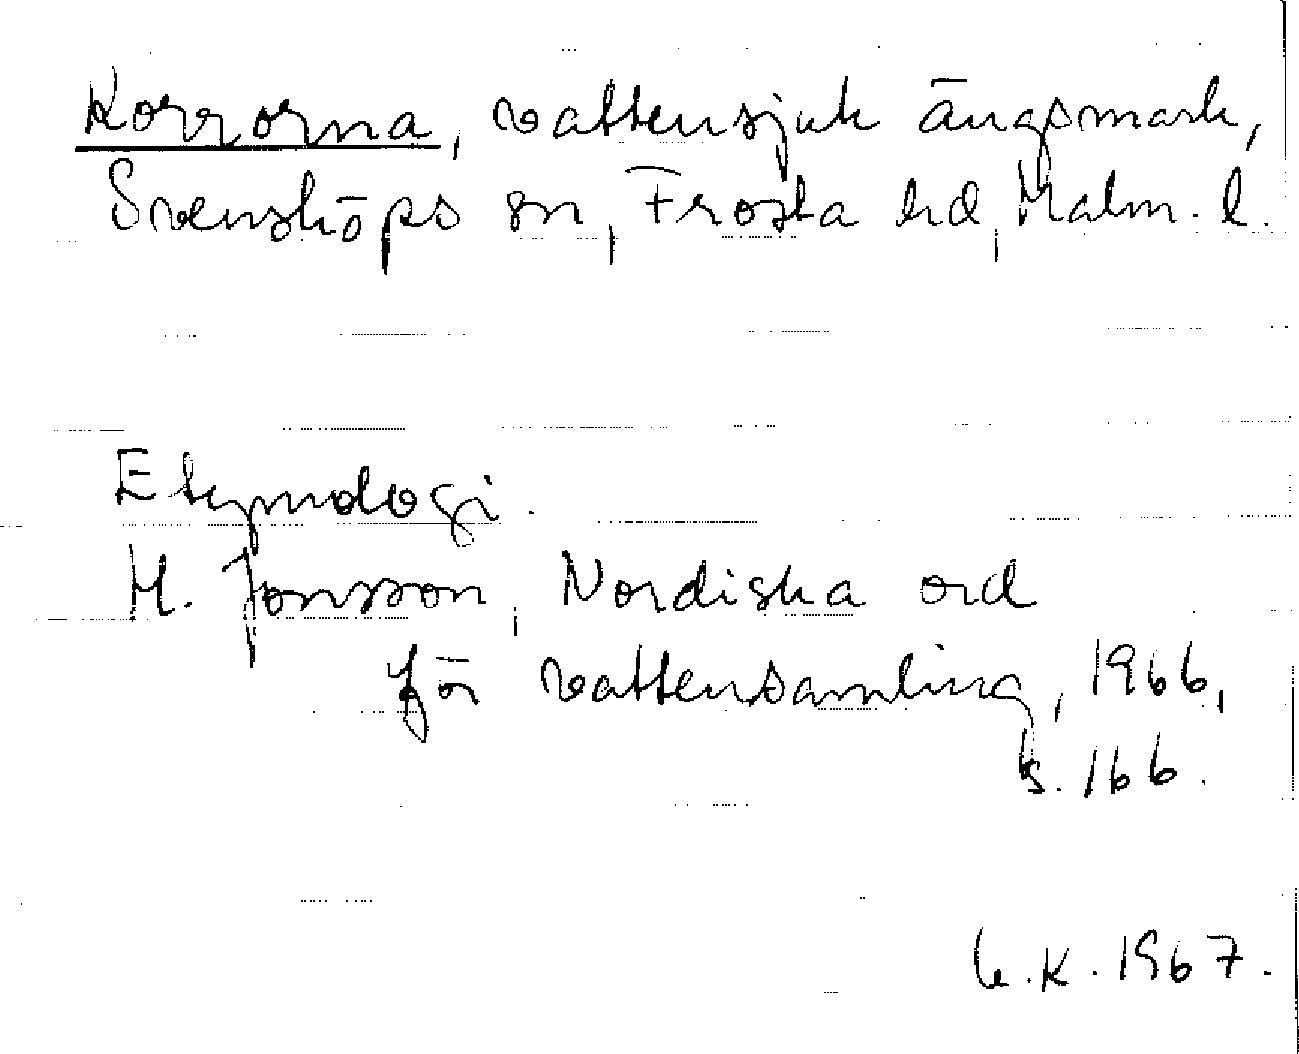 Korrorna, vattensjuk ängsmark,
Svensköps sn, Frosta hd, Malm. l.
Etymologi.
H. Jonsson, Nordiska ord
för vattensamling, 1966,
s. 166.
K. 1967.